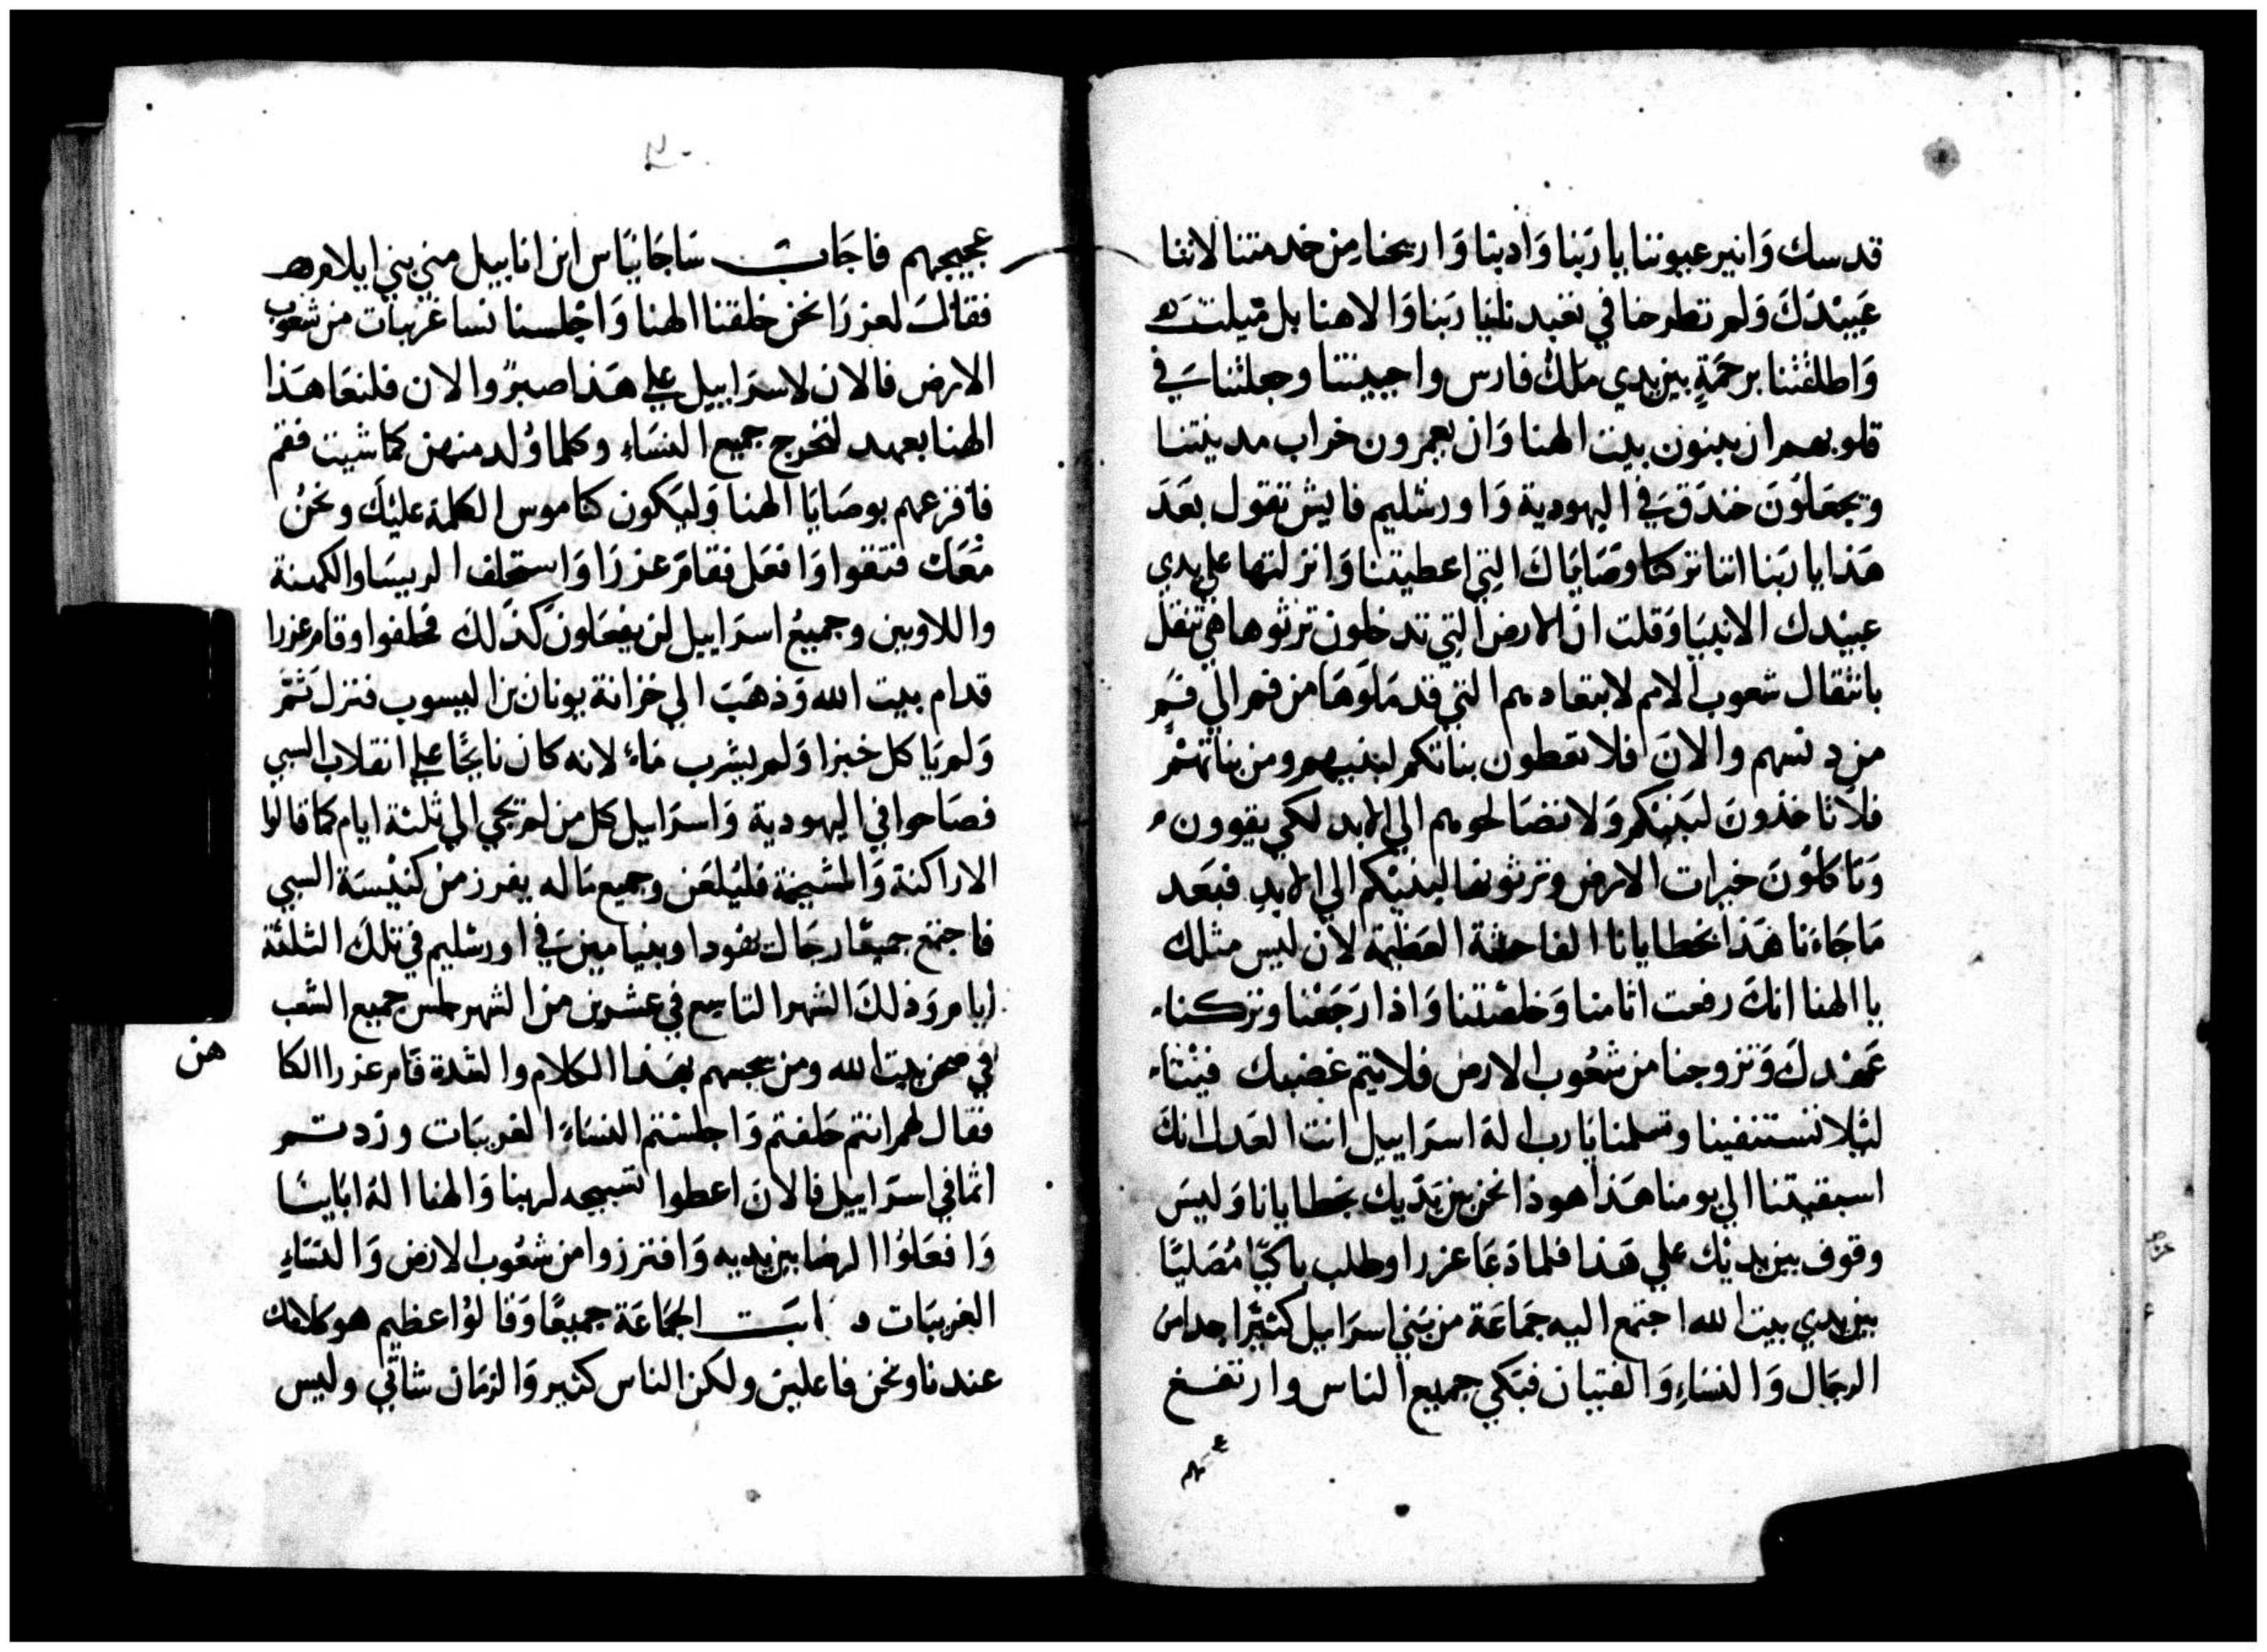 قدسك وانير عيوننا يا ربنا وادبنا واريحنا من خدمتنا لاننا
عبيدك ولم تطرحنا في تعبد نلنيا ربنا والاهنا بل ميلت
واطلقتنا برحمةٍ بين يدي ملك فارس واحييتنا وجعلتنا في
قلوبهم ان يبنون بيت الهنا وان يعمرون خراب مدينتنا
وتجعلون خندق في اليهودية واورشليم فايش نقول بعد
هذا يا ربنا اننا تركنا وصاياك التي اعطيتنا وانزلتها على يدي
عبيدك الانبيا وقلت ان الارض التي تدخلون ترثوها هي تنقل
بانتقال شعوب الامم لابتعادهم التي قد ملوها من فم الي فم
من دنسهم والان فلا تعطون بناتكم لبنيهم ومن بناتهم
فلا تاخذون لبنيكم ولا تصالحوهم الي الابد لكي يقوون
وتاكلون خيرات الارض وترثوها لبنيكم الي الابد فبعد
ما جاءنا هذا بخطايانا الفاحشة العظيمة لان ليس مثلك
يا الهنا انك رفعت اثامنا وخلصتنا واذا رجعنا وتركناء
عهدك وتزوجنا من شعوب الارض فلا يتم غضبك فيناء
لئلا تستنفينا وتسلمنا يا رب اله اسراييل انت العدل انك
استبقيتنا الي يومنا هذا هوذا نحن بين يديك بخطايانا وليس
وقوف بين يديك على هذا فلما دعا عزرا وطلب باكيًا مصليًا
بين يدي بيت الله اجتمع اليه جماعة من بني اسراييل كثيرًا جدا من
الرجال والنساء والفتيان فبكي جميع الناس وارتفع
عجيجهم فاجابت ساجانياس ابن اناييل من بني ايلام
فقالت لعزرا نحن خلفنا الهنا واجلسنا نسا غريبات من شعوب
الارض فالان لاسراييل على هذا صبرٌ والان فلنعاهذا
الهنا بعهد لنخرج جميع النساء وكلما ولد منهن كما شيت فقم
فافزعهم بوصايا الهنا وليكون كناموس الكلمة عليك ونحن
معك فتقوا وافعل فقام عزرا واستحلف الريسا والكهنة
واللاويين وجميع اسراييل لن يفعلون كذلك فحلفوا وقام عزرا
قدام بيت الله وذهب الي خزانة يونان بن اليسوب فنزل ثم
ولم ياكل خبزا ولم يشرب ماء لانه كان نايحًا على انقلاب السبي
فصاحوا في اليهودية واسراييل كل من لم يجي الي ثلثة ايام كما قالوا
الاراكنة والمشيخة فليلعن وجميع ماله يفرز من كنيسة السبي
فاجتمع جميعًا رجال يهودا وبنيامين في اورشليم في تلك الثلثة
ايام وذلك الشهر التاسع في عشرين من الشهر جلس جميع الشعب
في صحن بيت الله ومن عجبهم بهذا الكلام والشدة قام عزرا الكا
هن
فقال لهم انتم خلفتم واجلستم النساء الغريبات وزدتم
اثما في اسراييل فالان اعطوا تسبيحه لربنا والهنا اله اباينا
وافعلوا الرضا بين يديه وافترزوا من شعوب الارض والنساء
الغريبات ه ابت الجماعة جميعًا وقالوا عظيم هو كلامك
عندنا ونحن فاعلين ولكن الناس كثير والزمان شاتي وليس